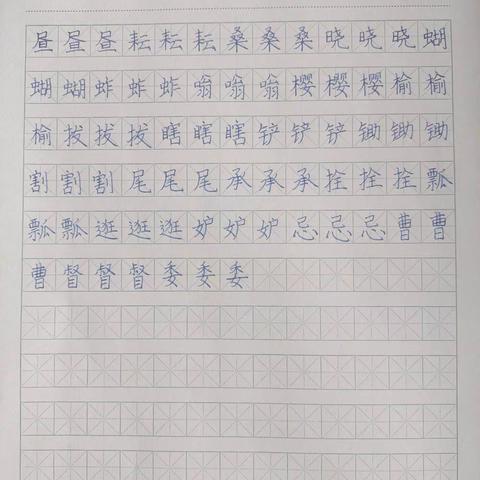 昼昼昼耘耘耘桑桑桑晓晓晓蝴
蝴蝴蚱蚱蚱嗡嗡嗡樱樱樱榆榆
榆拔拔拔瞎瞎瞎铲铲铲锄锄锄
割割割尾尾尾承承承拴拴拴瓢
瓢瓢逛逛逛妒妒妒忌忌忌曹曹
曹督督督委委委